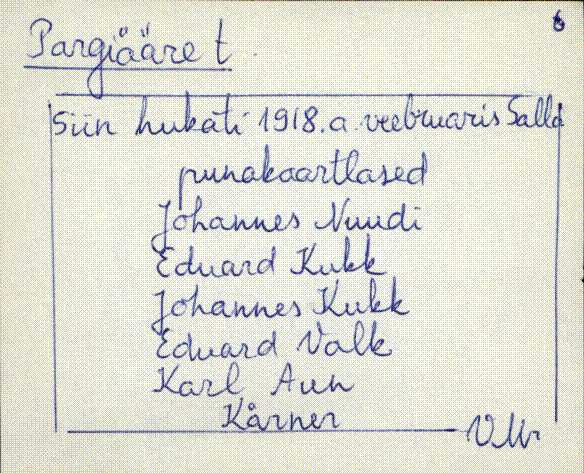 6
Pargiääre t.
Siin hukati 1918. a. veebruaris Salla
punakaartlased
Johannes Nuudi
Eduard Kukk
Johannes Kukk
Eduard Valk
Karl Aun
Kårner